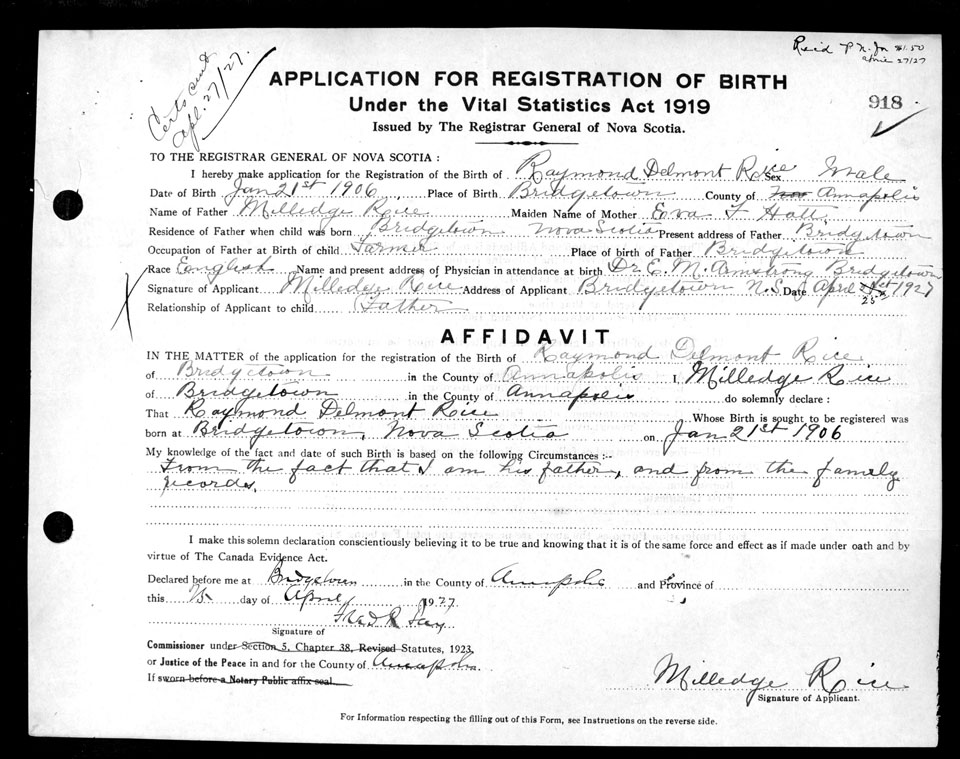 Certs sent
Apl. 27/27.
P N. Jn $1.50
27/27
APPLICATION FOR REGISTRATION OF BIRTH
Under the Vital Statistics Act 1919
918
Issued by The Registrar General of Nova Scotia.
TO THE REGISTRAR GENERAL OF NOVA SCOTIA :
I hereby make application for the Registration of the Birth of Raymond Delmont Rice Sex Male
Date of Birth Jan 21st 1906 Place of Birth Bridgetown County of Annapolis
Name of Father Milledge Rice Maiden Name of Mother Eva F Hall
Residence of Father when child was born Bridgetown Nova Scotia Present address of Father Bridgetown
Occupation of Father at Birth of child Farmer Place of birth of Father Bridgetown
Race English Name and present address of Physician in attendance at birth Dr E. M. Armstrong Bridgetown
Signature of Applicant Milledge Rice Address of Applicant Bridgetown N.S Date April 25 1927
Relationship of Applicant to child Father
AFFIDAVIT
IN THE MATTER of the application for the registration of the Birth of Raymond Delmont Rice
of Bridgetown in the County of Annapolis I, Milledge Rice
of Bridgetown in the County of Annapolis do solemnly declare :
That Raymond Delmont Rice Whose Birth is sought to be registered was
born at Bridgetown, Nova Scotia on Jan 21st 1906
My knowledge of the fact and date of such Birth is based on the following Circumstances :-
From the fact that I am his father, and from the family
records.
I make this solemn declaration conscientiously believing it to be true and knowing that it is of the same force and effect as if made under oath and by
virtue of The Canada Evidence Act.
Declared before me at Bridgetown in the County of Annapolis and Province of
this 25 day of April 1927
Fred R Fay
Signature of
Commissioner under Section 5, Chapter 38, Revised Statutes, 1923,
or Justice of the Peace in and for the County of Annapolis.
If sworn before a Notary Public affix seal.
Milledge Rice
Signature of Applicant.
For Information respecting the filling out of this Form, see Instructions on the reverse side.